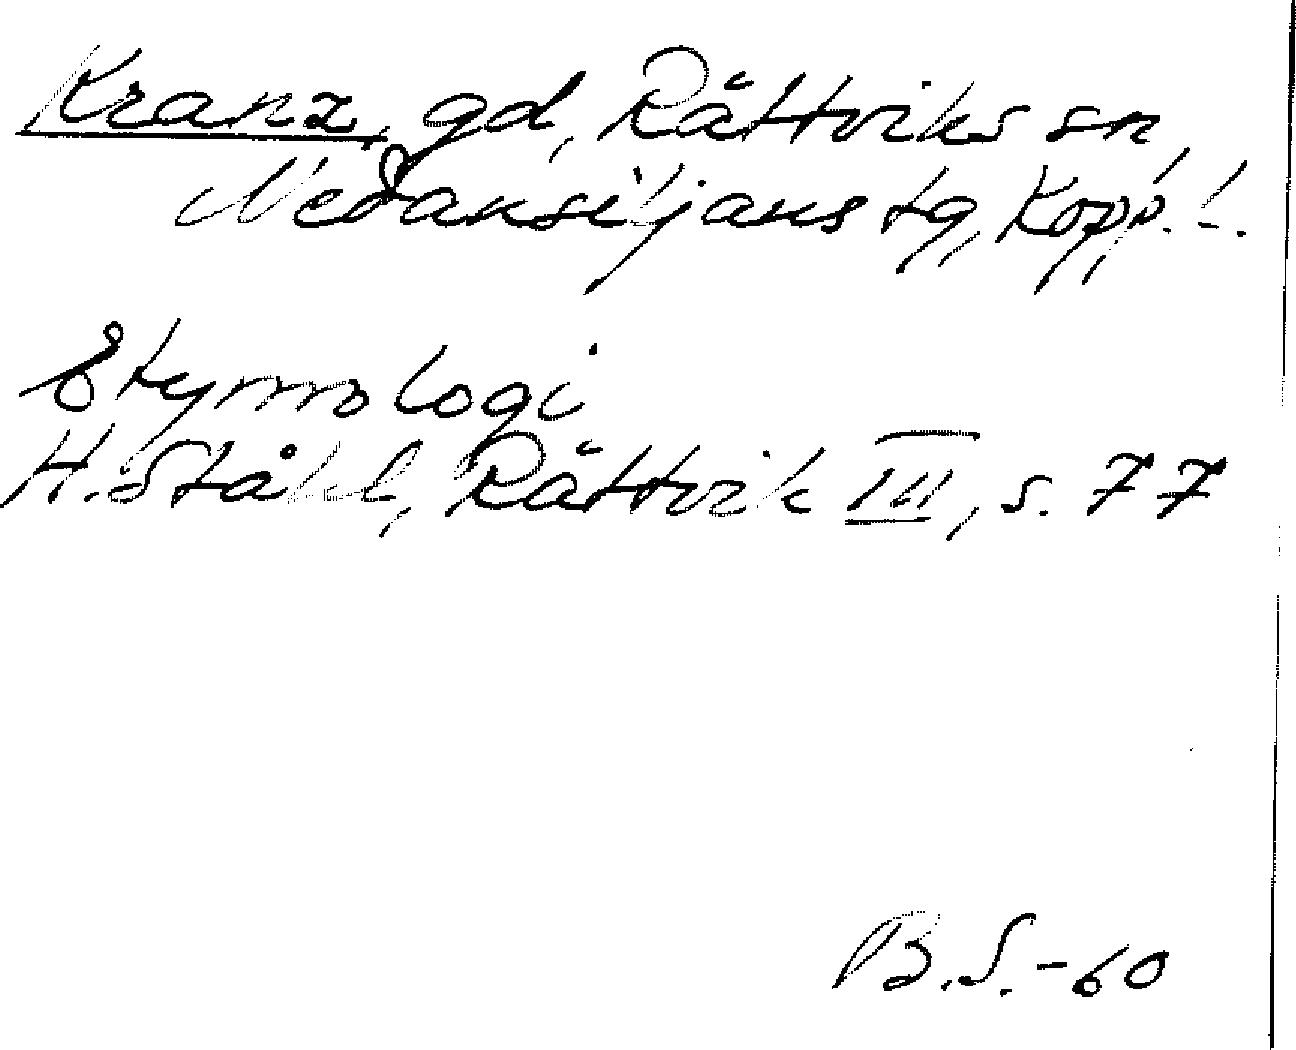 Kranx, gd, Rättviks sn,
Nedansiljans tg, Kopp. l.
Etymologi
H. Ståhl, Rättvik III, s. 77
B.S.-60